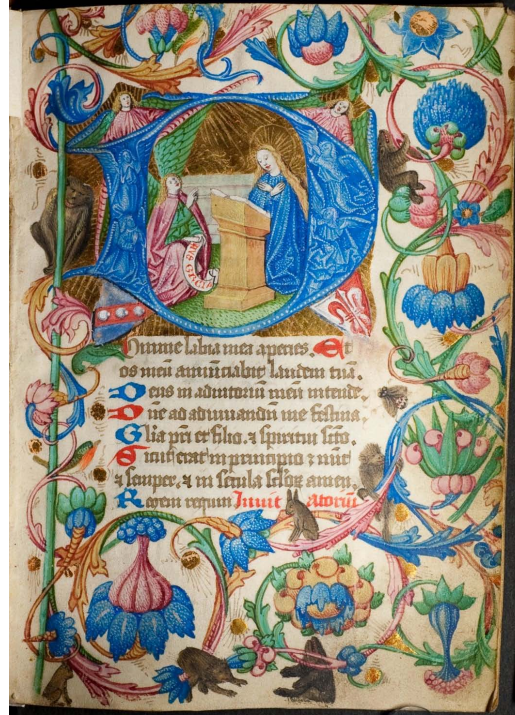 Domine labia mea aperies. Et
os meū annūciabit laudem tuā.
Deus in adiutoriū meū intende,
Dne ad adiuuandū me festina
Glīa pr̄i et filio, ⁊ spiritui sc̄to,
Sicut erat in principio ⁊ nūc
⁊ semper, ⁊ in secula sc̄loꝝ amen,
Regem regum Inuit atoriū